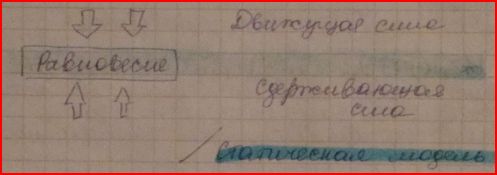 Движущая сила
Равновесие
Сдерживающая
сила
Статическая модель